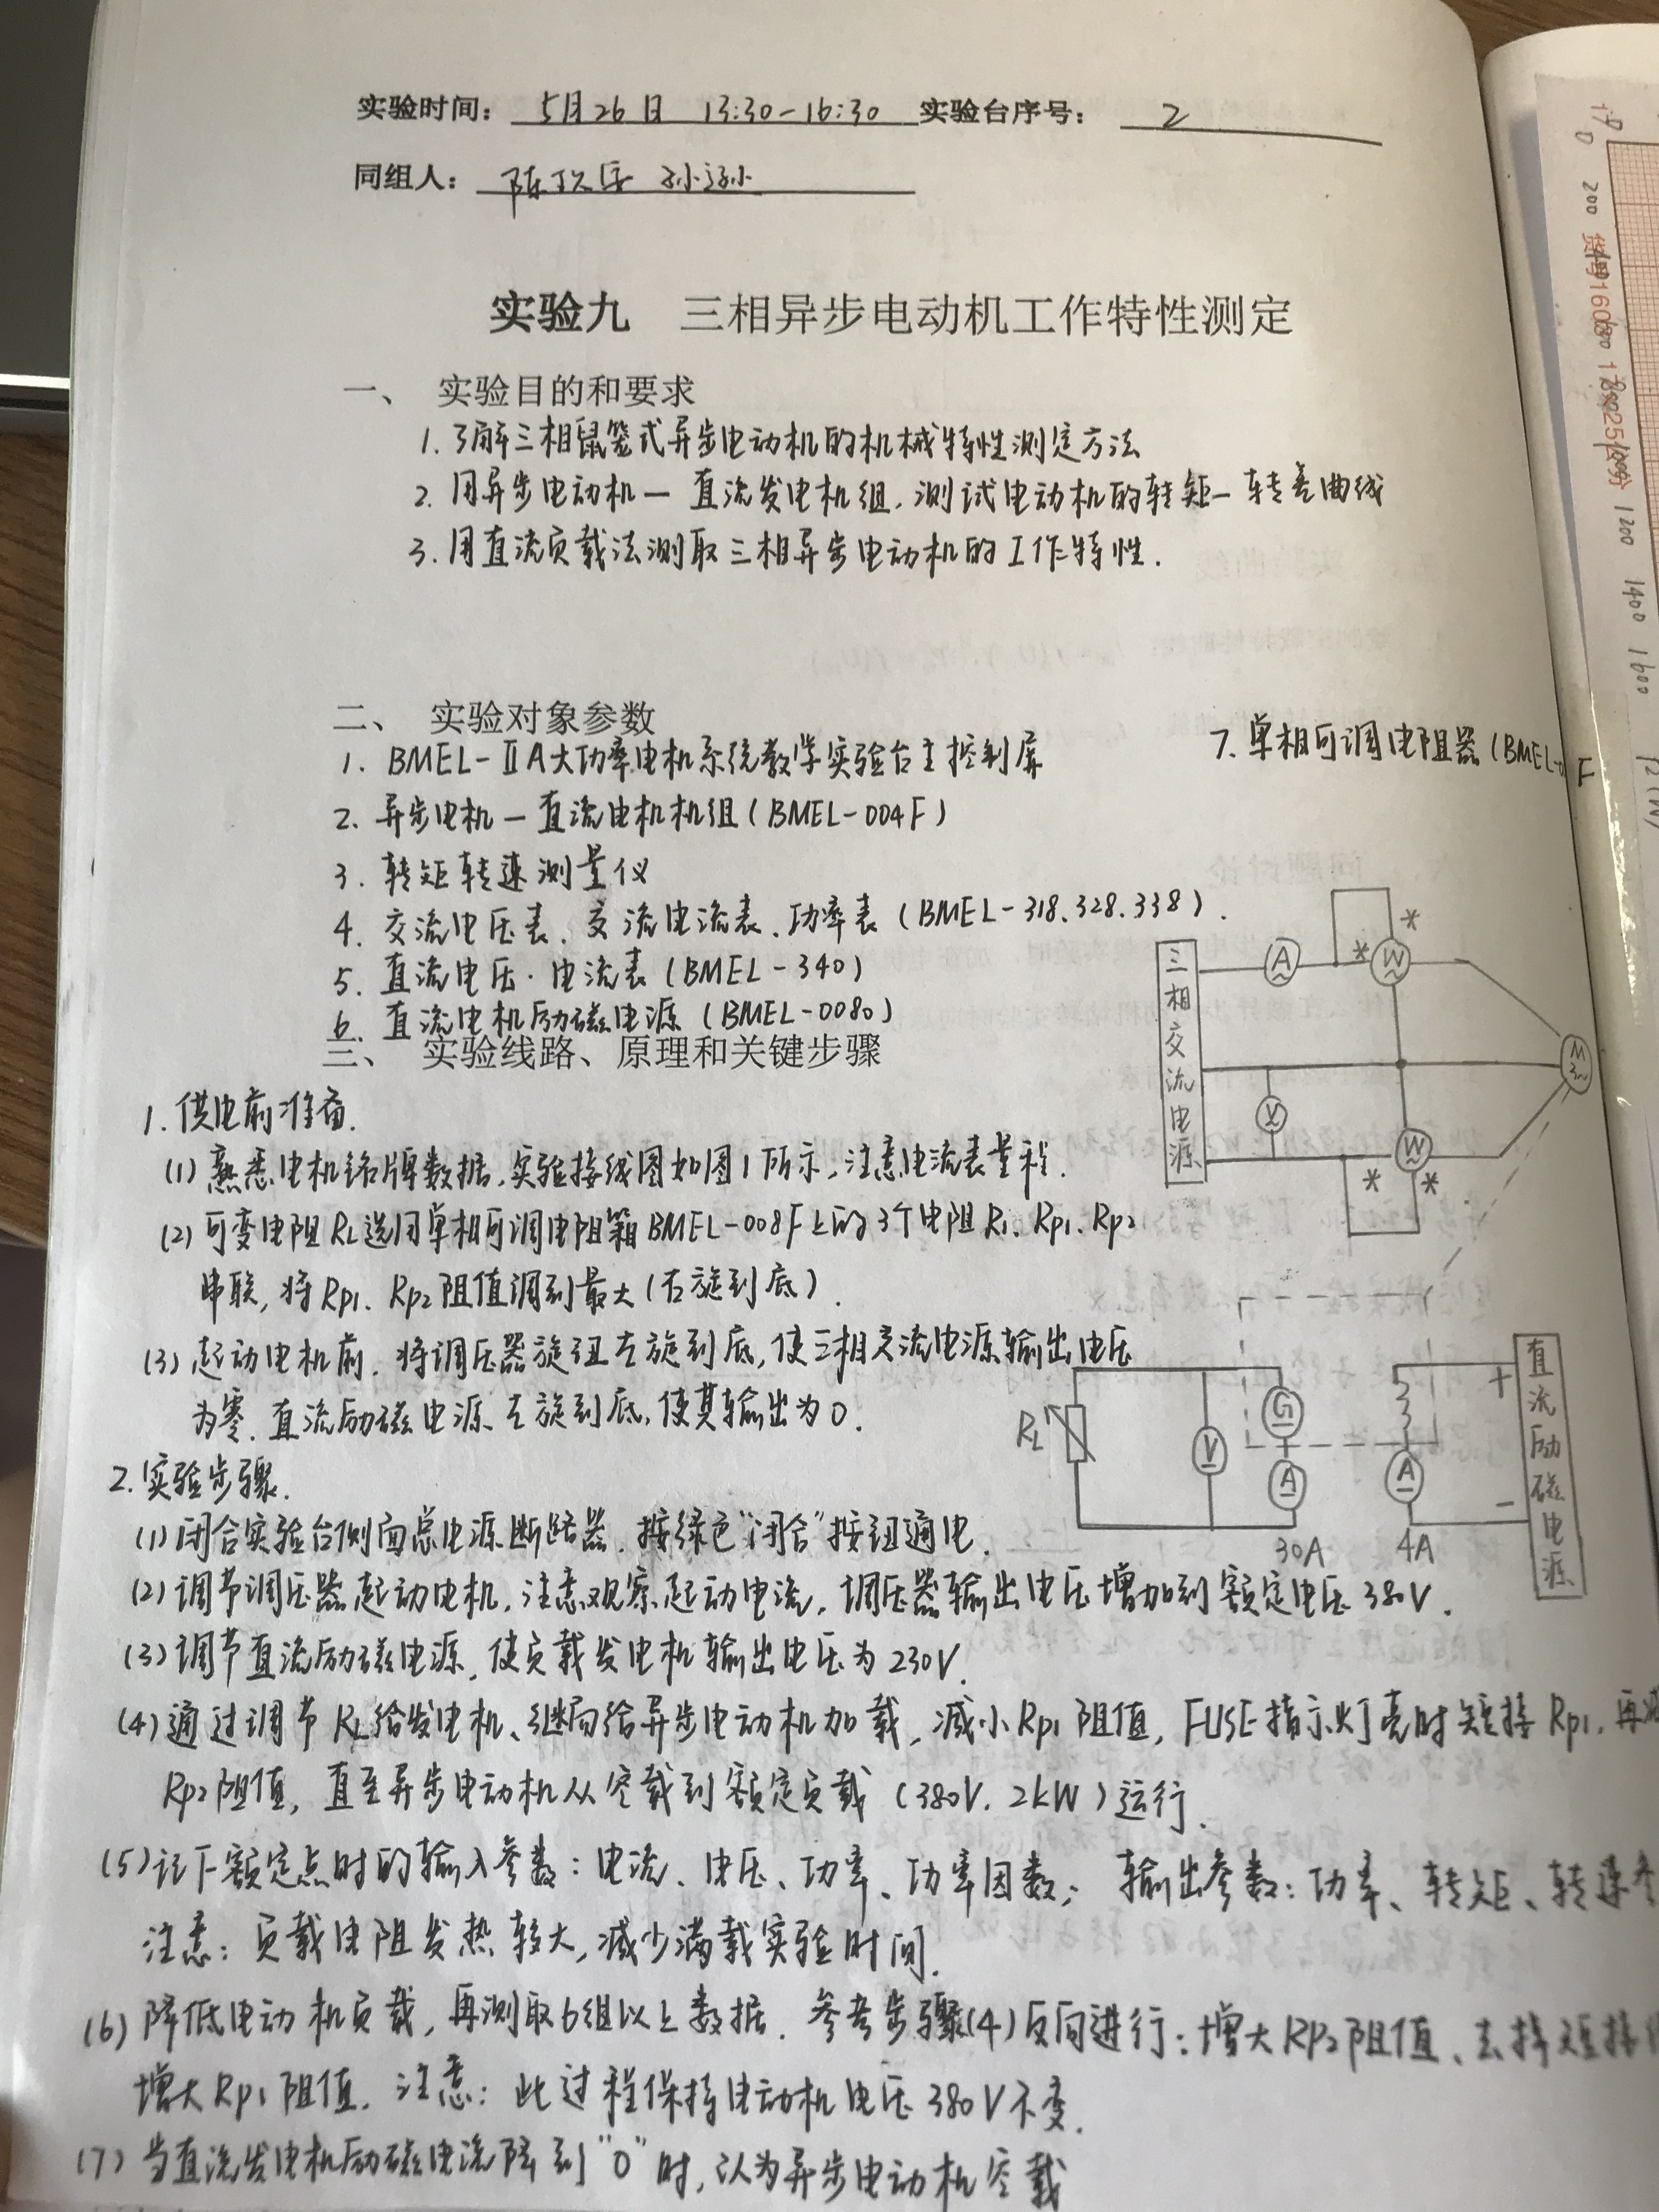 实验时间: 5月26日 13:30-16:30 实验台序号: 2
同组人:
实验九 三相异步电动机工作特性测定
一、 实验目的和要求
1. 了解三相鼠笼式异步电动机的机械特性测定方法
2. 用异步电动机—直流发电机组,测试电动机的转矩—转差曲线
3. 用直流负载法测取三相异步电动机的工作特性.
二、 实验对象参数
1. BMEL-ⅡA大功率电机系统教学实验台主控制屏
7. 单相可调电阻器(BMEL-
F
2. 异步电机—直流电机机组(BMEL-004F)
3. 转矩转速测量仪
4. 交流电压表、交流电流表、功率表(BMEL-318、328、338).
5. 直流电压·电流表(BMEL-340)
6. 直流电机励磁电源(BMEL-0080)
三、 实验线路、原理和关键步骤
1. 供电前准备.
(1) 熟悉电机铭牌数据,实验接线图如图1所示,注意电流表量程.
(2) 可变电阻RL选用单相可调电阻箱BMEL-008F上的3个电阻R1、Rp1、Rp2
串联,将Rp1、Rp2阻值调到最大(右旋到底).
(3) 起动电机前,将调压器旋钮左旋到底,使三相交流电源输出电压
为零.直流励磁电源左旋到底,使其输出为0.
三相交流电源
A
* * W
V
W
* *
M
3~
RL
V
G
A
30A
A
4A
+
-
直流励磁电源
2. 实验步骤.
(1) 闭合实验台侧面总电源断路器.按绿色"闭合"按钮通电.
(2) 调节调压器起动电机,注意观察起动电流,调压器输出电压增加到额定电压380V.
(3) 调节直流励磁电源,使负载发电机输出电压为230V.
(4) 通过调节RL给发电机、继而给异步电动机加载,减小Rp1阻值,FUSE指示灯亮时短接Rp1,再减
Rp2阻值,直至异步电动机从空载到额定负载(380V,2kW)运行.
(5) 记下额定点时的输入参数:电流、电压、功率、功率因数; 输出参数:功率、转矩、转速
注意:负载电阻发热较大,减少满载实验时间.
(6) 降低电动机负载,再测取6组以上数据.参考步骤(4)反向进行:增大Rp2阻值、去掉短接
增大Rp1阻值.注意:此过程保持电动机电压380V不变.
(7) 当直流发电机励磁电流降到"0"时,认为异步电动机空载
0
200
1200
1400
1600
P2(W)